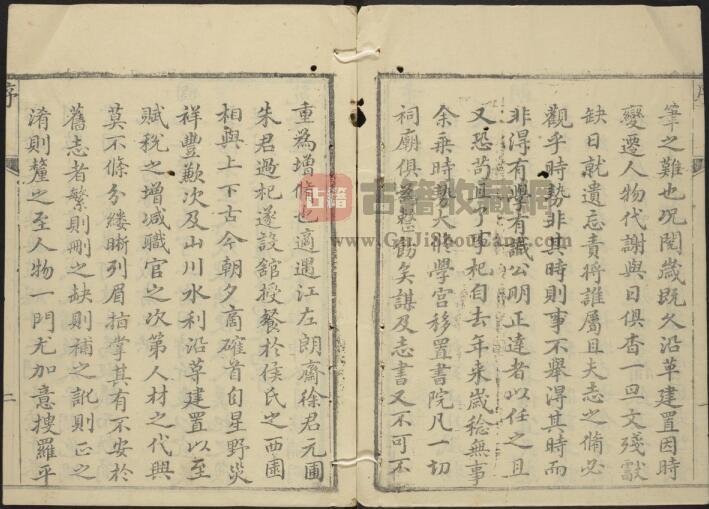 筆之難也况閱歲既久沿革建置因時
變遷人物代謝與日俱杳一旦文殘獻
缺日就遺忘責將誰屬且夫志之脩必
觀乎時勢非其時則事不舉得其時而
非得有學有識公明正達者以任之且
又恐苟且了事杞自去年来歲稔無事
余乗時勢大將學宮移置書院凡一切
祠廟俱爲整飭矣謀及志書又不可不
重為增修也適遇江左朗齋徐君元圃
朱君過杞遂設舘授餐於侯氏之西圃
相與上下古今朝夕商確首自星野災
祥豐歉次及山川水利沿革建置以至
賦税之增减職官之次第人材之代興
莫不條分縷晰列眉指掌其有不安於
舊志者繁則刪之缺則補之訛則正之
淆則釐之至人物一門尤加意搜羅平
序
二
古籍
古籍收藏網
www.GuJiShouCang.com